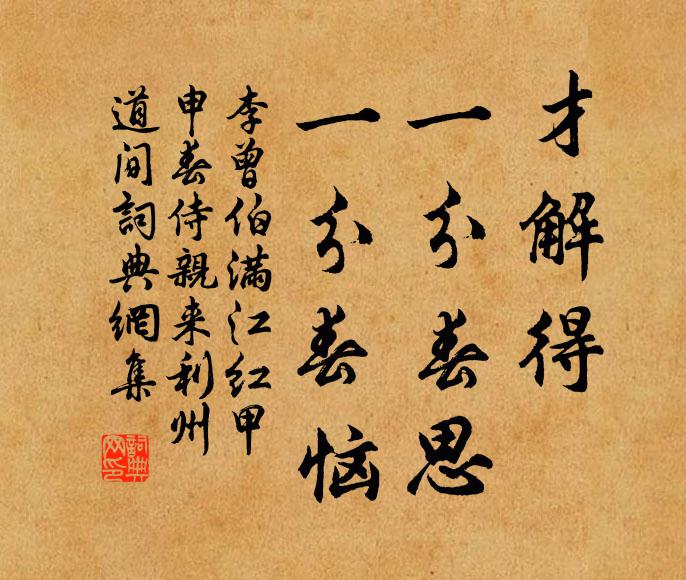 才解得
一分春思
一分春恼
李曾伯满江红甲
申春侍親来利州
道间詞典網集
詞典
网印